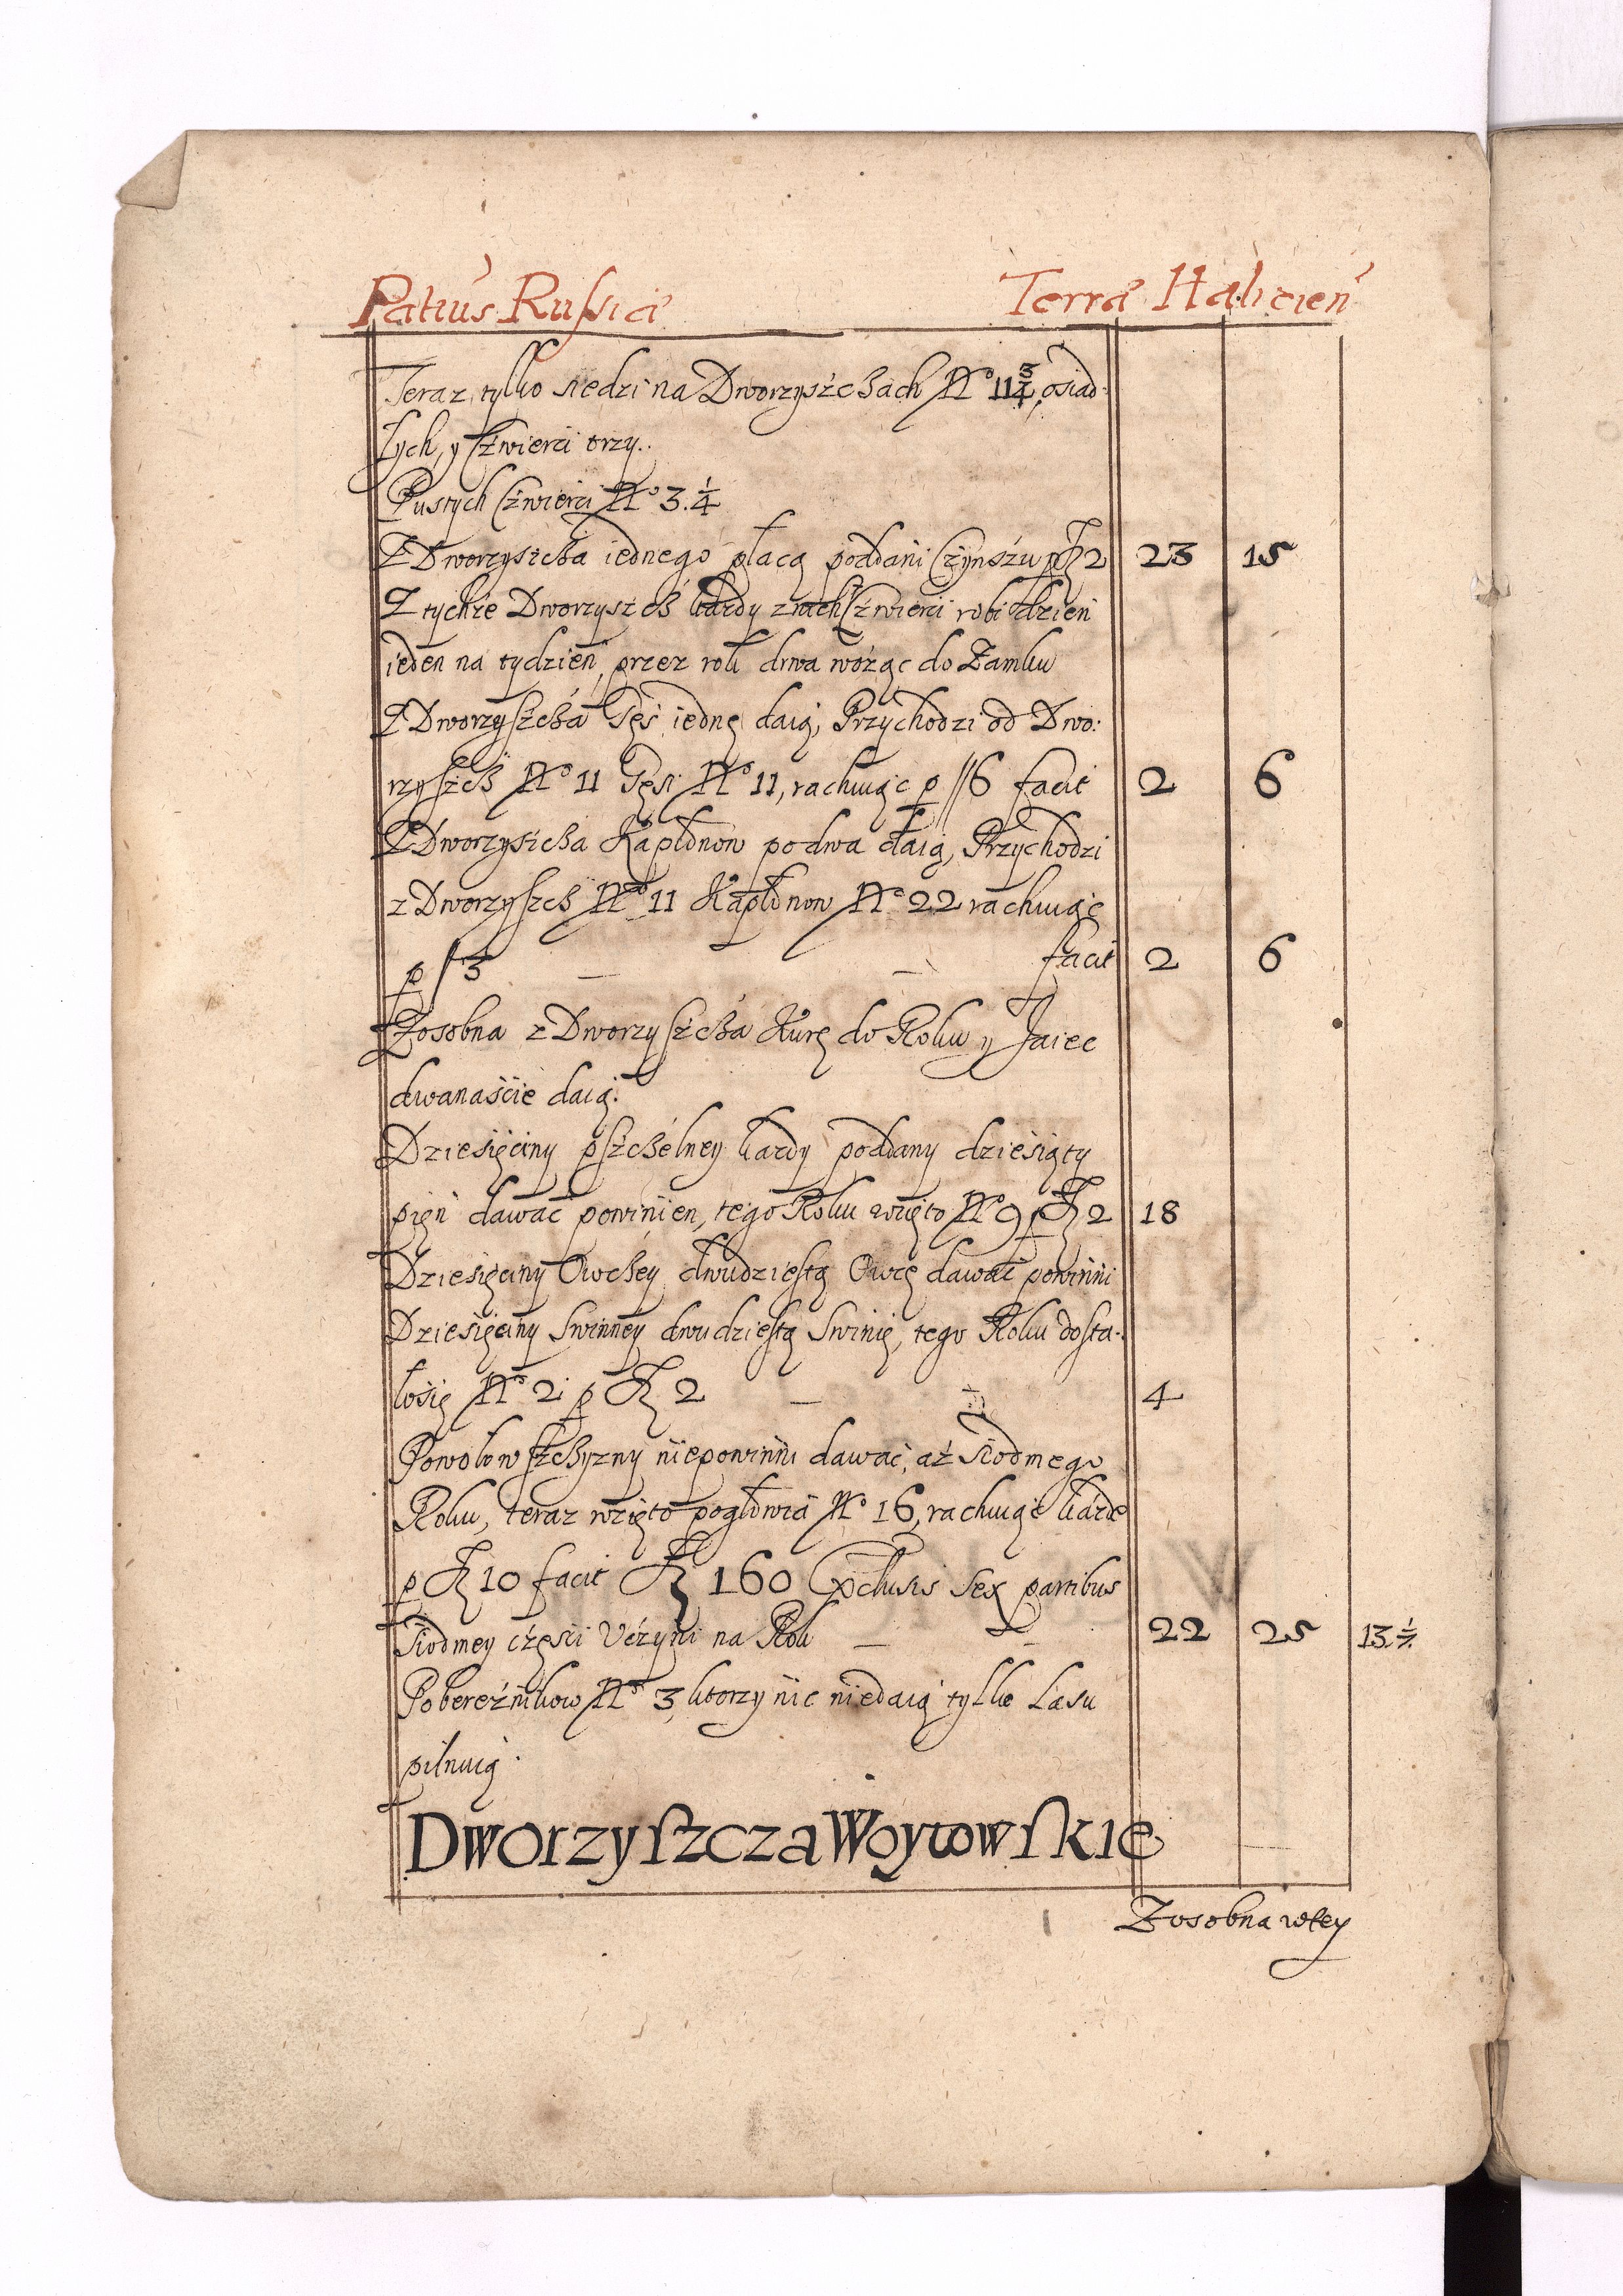 Patûs Russiæ Terræ Halicien̄
Teraz tylko siedzi na Dworzyszczách No 11¾ osiad-
łych, y czwierci trzy.
Pustych czwierci No 3.¼
Z Dworzyszcza iednego płacą poddáni czynszu p fl 2 23 15
Z tychże Dworzyszcz każdy z nich czwierci robi dzień
ieden na tydzień, przez rok drwa wożąc do Zamku
Z Dworzyszcza Gęś iednę daią, Przychodzi od Dwo:
rzyszcz No 11 Gęsi No 11, rachuiąc p ʃʃ 6 facit 2 6
Z Dworzyszcza Kápłonow po dwa daią, Przychodzi
z Dworzyszcz No 11 Kapłonow No 22 rachuiąc
p ʃ 3 — — facit 2 6
Zosobna z Dworzyszcza Kurę do Roku y Jaiec
dwanaście daią.
Dziesięciny pszczelney każdy poddany dziesiąty
pień dawać powinien, tego Roku wzięto No 9 p fl 2 18
Dziesięciny Owczey dwudziestą Owcę dawać powinni
Dziesięciny Swinney dwudziestą Swinię, tego Roku dosta-
łosię No 2 p fl 2 — 4
Powołowszczyzny niepowinni dawać, aż siodmego
Roku, teraz wzięto pogłowia No 16, rachuiąc każde
p fl 10 facit fl 160 Exclusis sex partibus
Siodmey części Uczyni na Rok — — 22 25 13 1/7
Pobereźnikow No 3, ktorzy nic niedaią tylko Lasu
pilnuią.
Dworzyszcza Woytowskie
Zosobna wtey